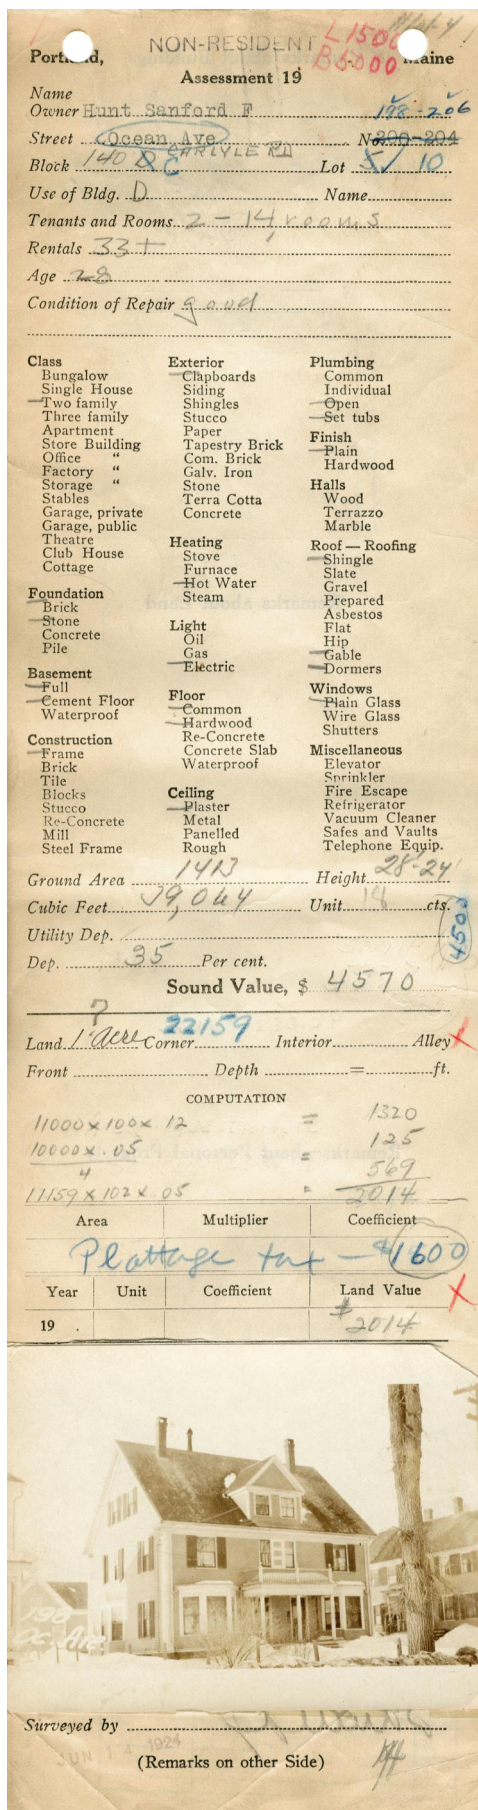 NON-RESIDENT L1500
Portland, B5000 Maine
Assessment 19
Name
Owner Hunt Sanford F 198-206
Street Ocean Ave. No. 200-204
CARLYLE RD
Block 140 D C Lot 5 10
Use of Bldg. D Name
Tenants and Rooms 2 - 14 rooms
Rentals 33+
Age 28
Condition of Repair good
Class
Bungalow
Single House
Two family
Three family
Apartment
Store Building
Office "
Factory "
Storage "
Stables
Garage, private
Garage, public
Theatre
Club House
Cottage
Foundation
Brick
Stone
Concrete
Pile
Basement
Full
Cement Floor
Waterproof
Construction
Frame
Brick
Tile
Blocks
Stucco
Re-Concrete
Mill
Steel Frame
Exterior
Clapboards
Siding
Shingles
Stucco
Paper
Tapestry Brick
Com. Brick
Galv. Iron
Stone
Terra Cotta
Concrete
Heating
Stove
Furnace
Hot Water
Steam
Light
Oil
Gas
Electric
Floor
Common
Hardwood
Re-Concrete
Concrete Slab
Waterproof
Ceiling
Plaster
Metal
Panelled
Rough
Plumbing
Common
Individual
Open
Set tubs
Finish
Plain
Hardwood
Halls
Wood
Terrazzo
Marble
Roof — Roofing
Shingle
Slate
Gravel
Prepared
Asbestos
Flat
Hip
Gable
Dormers
Windows
Plain Glass
Wire Glass
Shutters
Miscellaneous
Elevator
Sprinkler
Fire Escape
Refrigerator
Vacuum Cleaner
Safes and Vaults
Telephone Equip.
Ground Area 1413 Height 28-24'
Cubic Feet 39,064 Unit 18 cts.
4500
Utility Dep.
Dep. 35 Per cent.
Sound Value, $ 4570
?
Land 1 acre Corner 22159 Interior Alley X
Front Depth = ft.
COMPUTATION
11000 x 100 x .12 = 1320
10000 x .05 = 125
4 569
11159 x 102 x .05 = 2014
Area Multiplier Coefficient
Plottage tax - $1600
Year Unit Coefficient Land Value X
19 . $2014
198
Oc. Ave
Surveyed by
JUN 14 1924
(Remarks on other Side)